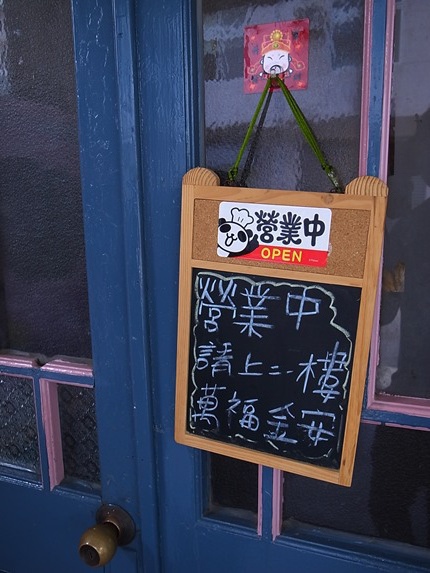 營業中
OPEN
營業中
請上二樓
萬福全安